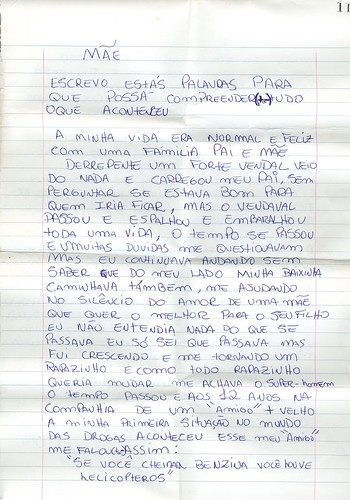 11
MÃE
ESCREVO ESTÁS PALAVRAS PARA
QUE POSSA COMPREENDER TUDO
OQUE ACONTECEU
A MINHA VIDA ERA NORMAL E FELIZ
COM UMA FAMILIA PAI E MÃE
DERREPENTE UM FORTE VENDAL VEIO
DO NADA E CARREGOU MEU PAI, SEM
PERGUNTAR SE ESTAVA BOM PARA
QUEM IRIA FICAR, MAS O VENDAVAL
PASSOU E ESPALHOU E EMBARALHOU
TODA UMA VIDA, O TEMPO SE PASSOU
E MUITAS DUVIDAS ME QUESTIONAVAM
MAS EU CONTINUAVA ANDANDO SEM
SABER QUE DO MEU LADO MINHA BAIXINHA
CAMINHAVA TAMBEM, ME AJUDANDO
NO SILÊNCIO DO AMOR DE UMA MÃE
QUE QUER O MELHOR PARA O SEU FILHO
EU NÃO ENTENDIA NADA DO QUE SE
PASSAVA EU SÓ SEI QUE PASSAVA MAS
FUI CRESCENDO E ME TORNANDO UM
RAPAZINHO E COMO TODO RAPAZINHO
QUERIA MUDAR ME ACHAVA O SUPER-HOMEM
O TEMPO PASSOU E AOS 12 ANOS NA
COMPANHIA DE UM "AMIGO" + VELHO
A MINHA PRIMEIRA SITUAÇÃO NO MUNDO
DAS DROGAS ACONTECEU ESSE MEU "AMIGO"
ME FALOU ASSIM:
"SE VOCÊ CHEIRAR BENZINA VOCÊ OUVE
HELICOPTEROS"